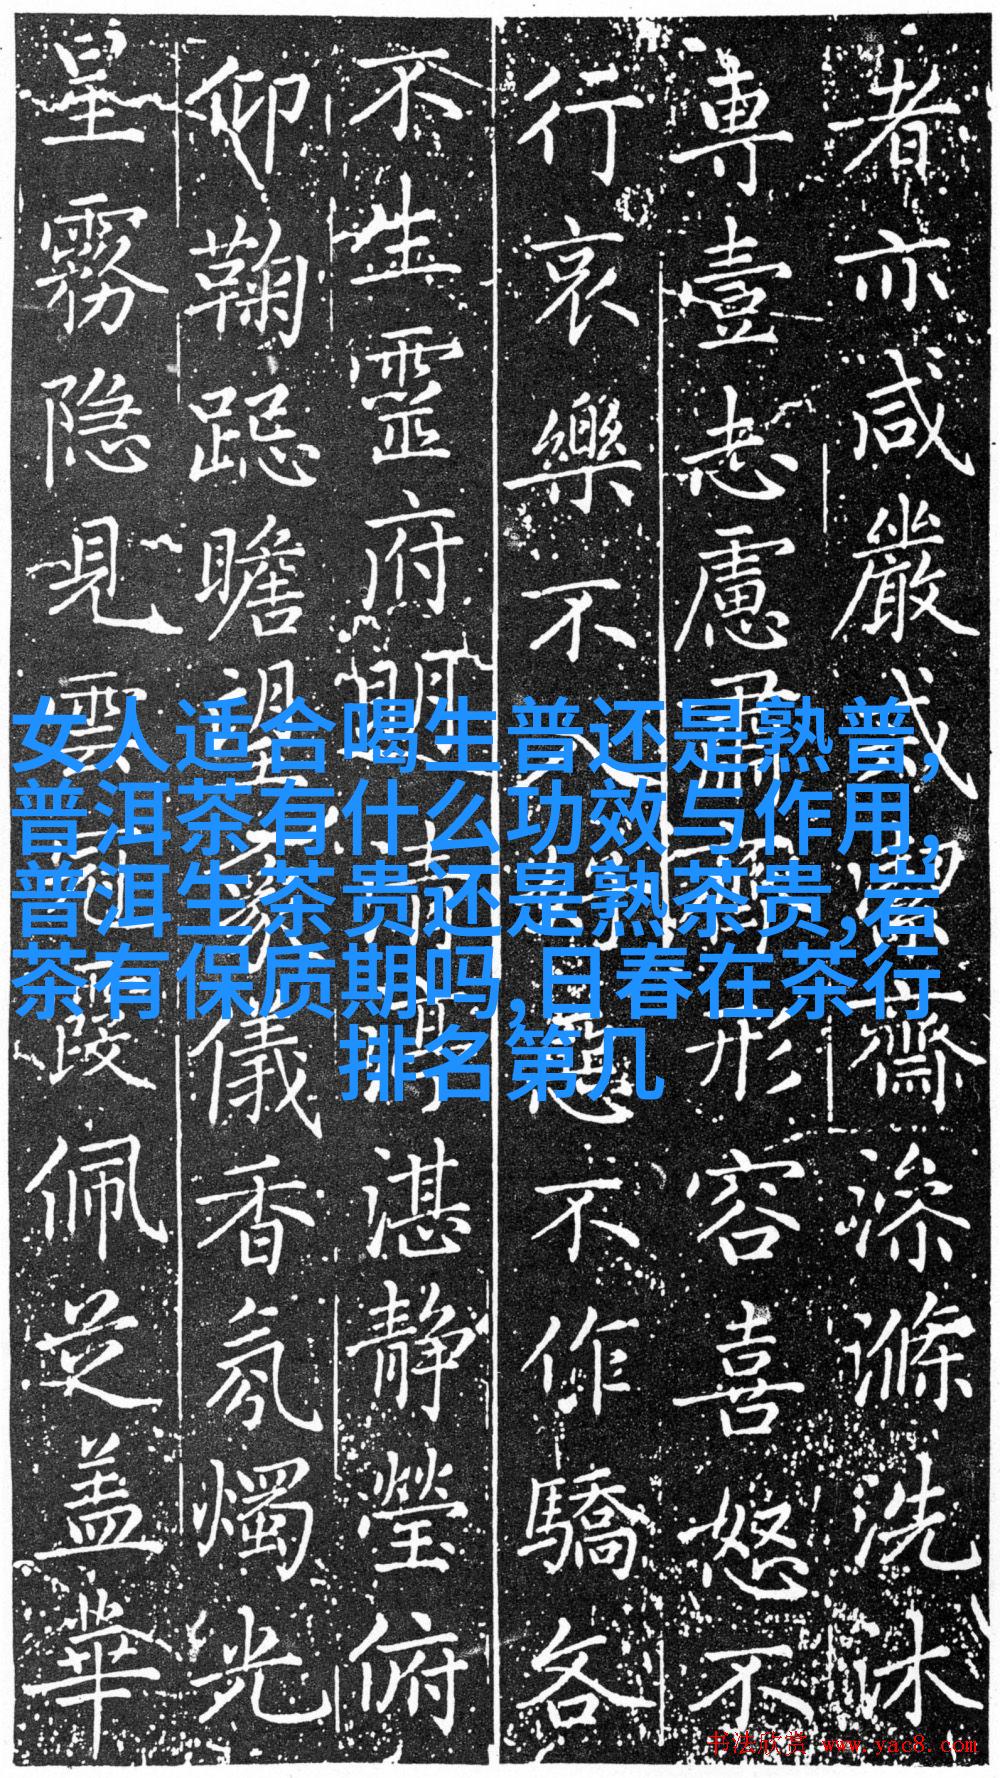 者亦咸嚴戒齋澡滌洗沐
専壹志慮形容喜怒不
行哀樂不不作驕各
不生靈府湛静瑩俯
仰鞠跽瞻望儀香氛燭光
星霧隐見雲佩芝盖華
女人适合喝生普还是熟普,
普洱茶有什么功效与作用,
普洱生茶贵还是熟茶贵,岩
茶有保质期吗,日春在茶行
排名第几
书法欣赏 www.yac8.com